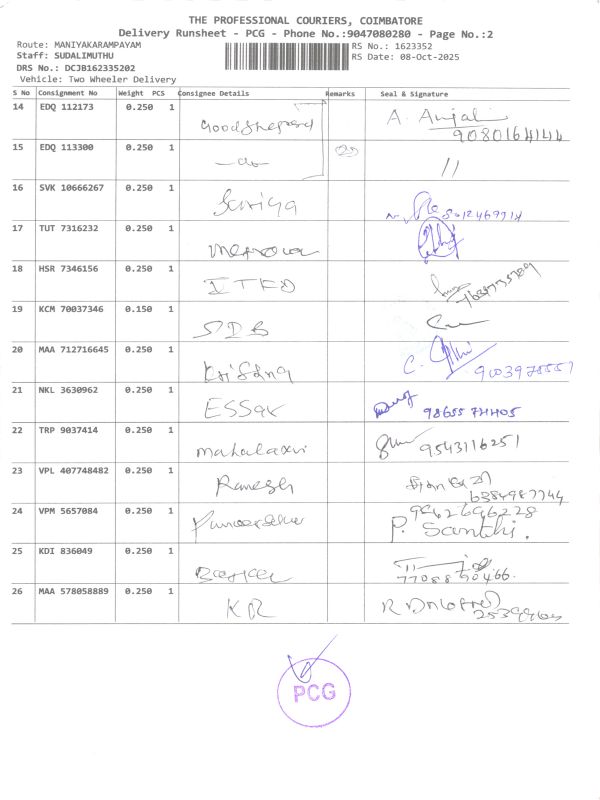 THE PROFESSIONAL COURIERS, COIMBATORE
Delivery Runsheet - PCG - Phone No.:9047080280 - Page No.:2
Route: MANIYAKARAMPAYAM
RS No.: 1623352
Staff: SUDALIMUTHU
RS Date: 08-Oct-2025
DRS No.: DCJB162335202
Vehicle: Two Wheeler Delivery
S No Consignment No Weight PCS Consignee Details Remarks Seal & Signature
14 EDQ 112173 0.250 1 Goodsheperd A. Anjali
9080164144
15 EDQ 113300 0.250 1 -do- 11
16 SVK 10666267 0.250 1
17 TUT 7316232 0.250 1
18 HSR 7346156 0.250 1
19 KCM 70037346 0.150 1 SDB
20 MAA 712716645 0.250 1 Krishna C.
21 NKL 3630962 0.250 1 ESSar 98655 74405
22 TRP 9037414 0.250 1 mahalaxmi 9543116251
23 VPL 407748482 0.250 1 Ramesh
6384987744
24 VPM 5657084 0.250 1 9962696228
P. Santhi.
25 KDI 836049 0.250 1
7708890466.
26 MAA 578058889 0.250 1 KR
PCG